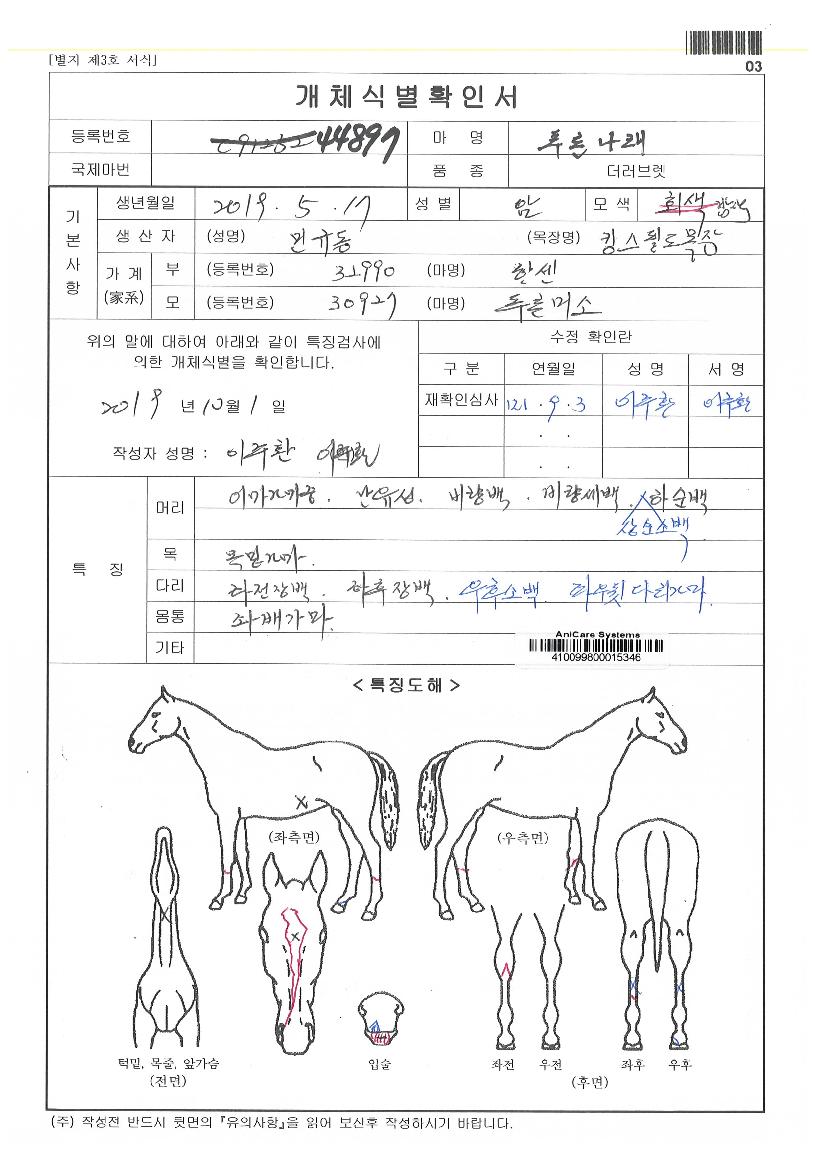 [별지 제3호 서식]
03
개체식별확인서
등록번호 44897 마 명 푸른나래
국제마번 품 종 더러브렛
기본사항
생년월일 2019. 5. 17 성 별 암 모 색 회색
생 산 자 (성명) 민규동 (목장명) 킹스필드목장
가 계 (家系) 부 (등록번호) 32990 (마명) 한센
모 (등록번호) 30927 (마명) 푸른미소
위의 말에 대하여 아래와 같이 특징검사에
의한 개체식별을 확인합니다.
2019 년 10월 1 일
작성자 성명 : 이주환
수정 확인란
구 분 연월일 성 명 서 명
재확인심사 '21 . 9 . 3 이주환 이주환
. .
. .
특 징
머리 이마가마중. 난유성. 비량백. 비량세백. 하순백
상순소백
목 목밑가마.
다리 좌전장백. 좌후장백. 우후소백. 좌우뒷다리가마.
몸통 좌배가마.
기타
AniCare Systems
410099800015346
< 특징도해 >
(좌측면) (우측면)
턱밑, 목줄, 앞가슴
(전면)
입술
좌전 우전 좌후 우후
(후면)
(주) 작성전 반드시 뒷면의 『유의사항』을 읽어 보신후 작성하시기 바랍니다.